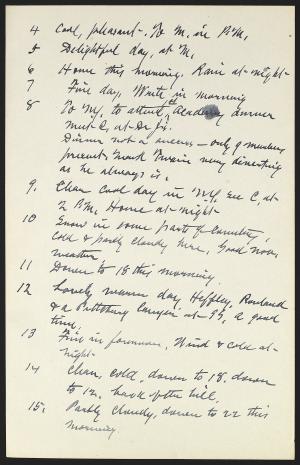 4 Cool, pleasant. To M. in P.M.
5 Delightful day, at M.
6 Home this morning. Rain at night
7 Fine day, Write in morning
8 To N.Y. to attend Academy dinner
Meet C. at Dr J's.
Dinner not a success - only 9 members
present. Mark Twain very diverting
as he always is.
9. Clear cool day in N.Y. see C. at
2 P.M. Home at night
10 Snow in some parts of Country,
cold & partly cloudy here. Good Nov.
weather
11 Down to 18 this morning.
12 Lovely warm day, Heffley, Rowland
& a Pittsburg lawyer at SS, a good
time.
13 Fine in forenoon, Wind & cold at
night
14 Clear, cold, down to 18, down
to 12, back of the hill.
15. Partly cloudy, down to 22 this
morning.